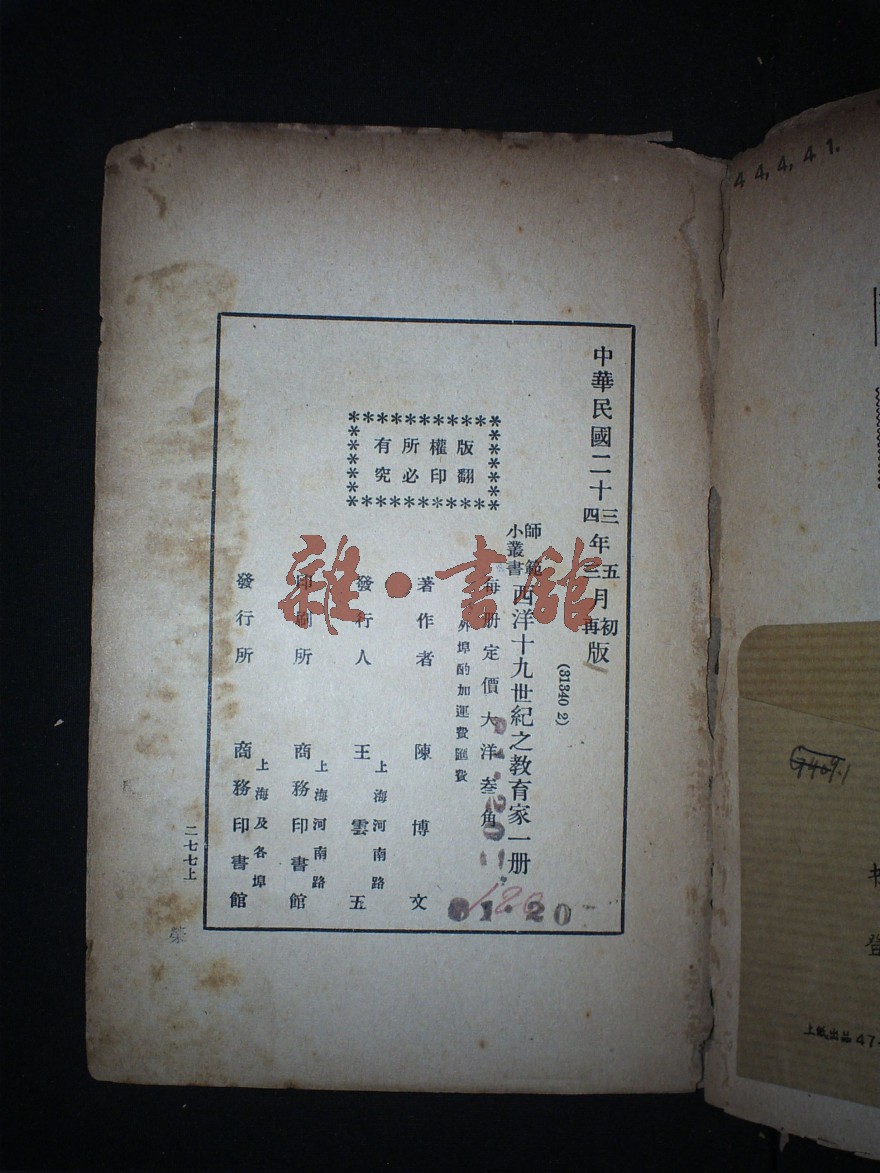 中華民國二十三年五月初版
四 三 再
(31340 2)
師範小叢書
西洋十九世紀之教育家一册
每册定價大洋叁角
外埠酌加運費匯費
版權所有
翻印必究
著作者 陳博文
發行人 王雲五
上海河南路
印刷所 商務印書館
上海河南路
發行所 商務印書館
上海及各埠
二七七上
榮
雜·書館
180
1.20
44,4,41.
上紙出品47-